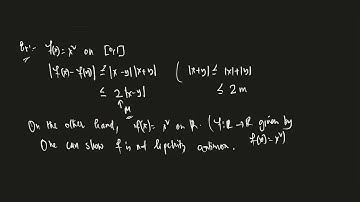 Ex:- f(x) = x² on [0,1]
|f(x) - f(y)| ≤ |x-y| |x+y| ( |x+y| ≤ |x|+|y|
≤ 2 |x-y| ≤ 2m
↑
M
On the other hand, f(x) = x² on ℝ. (f: ℝ → ℝ given by
One can show f is not lipschitz continuous. f(x) = x²)